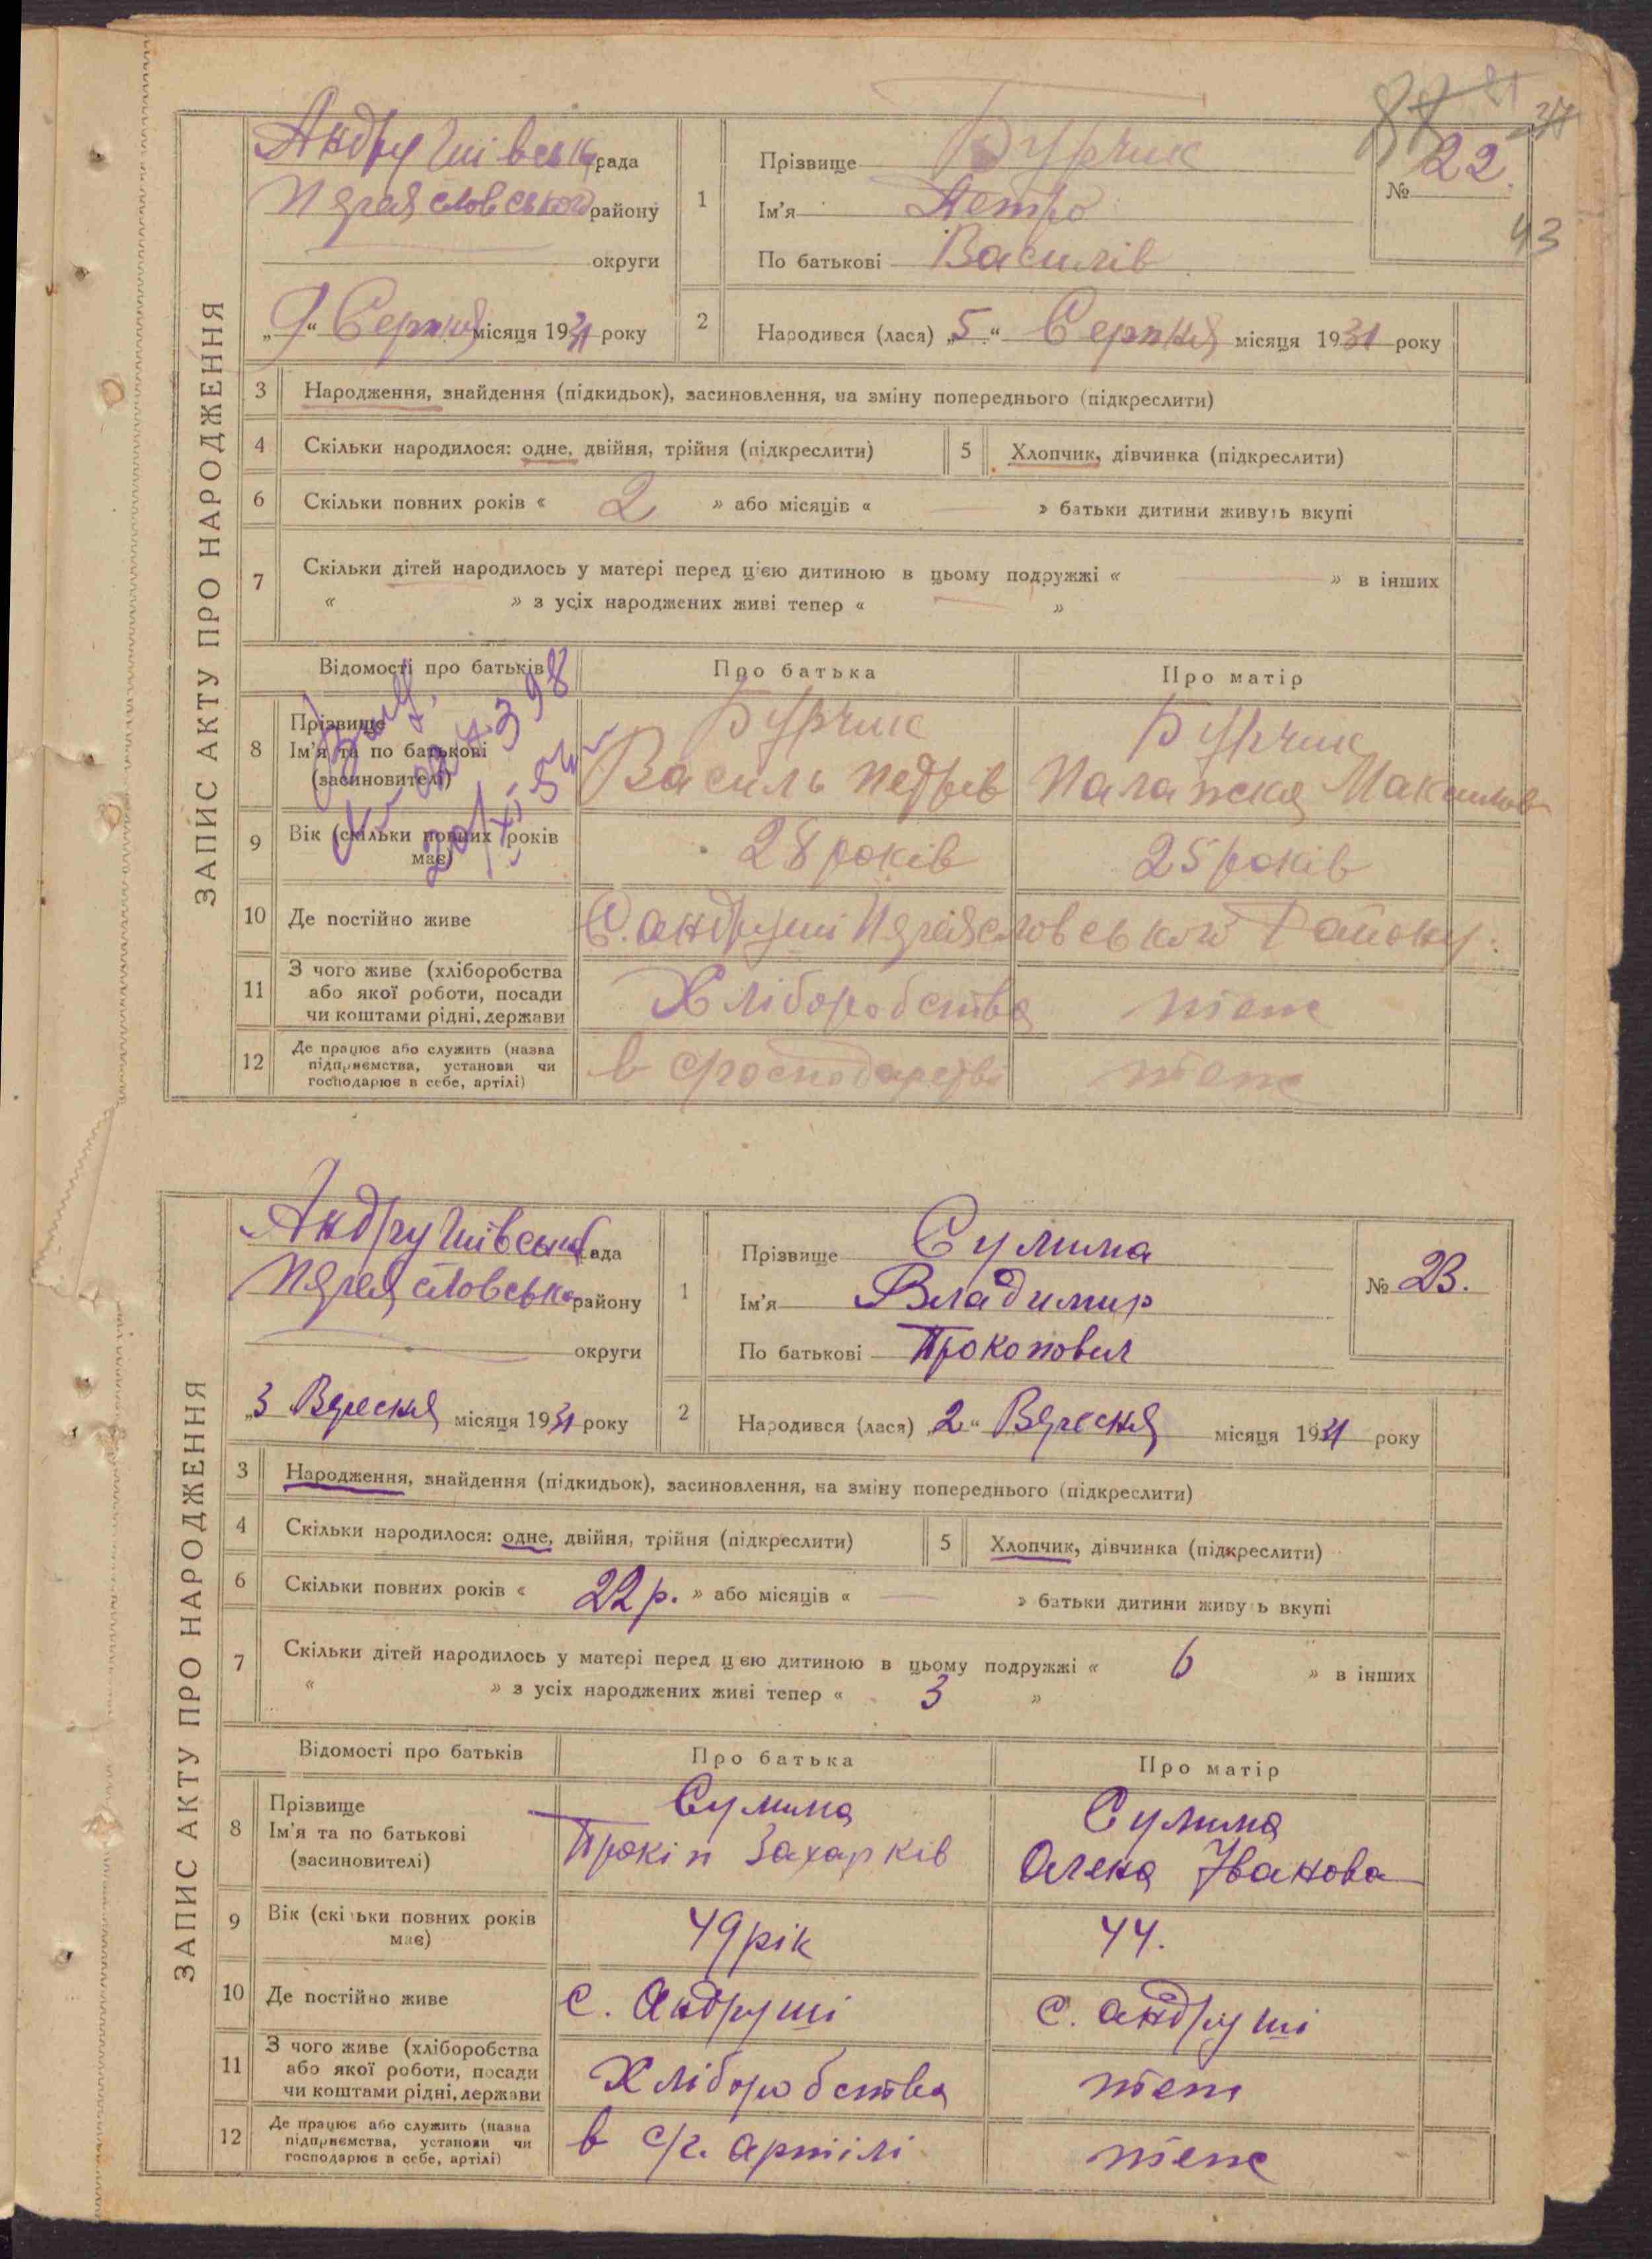 ЗАПИС АКТУ ПРО НАРОДЖЕННЯ
Андрушівська рада
Пяреяславського району
округи
„9“ Серпня місяця 1931 року
1
Прізвище Бурчик
Ім'я Петро
По батькові Василів
№ 22.
43
2
Народився (лася) „5“ Серпня місяця 1931 року
3 Народження, знайдення (підкидьок), засиновлення, на зміну попереднього (підкреслити)
4 Скільки народилося: одне, двійня, трійня (підкреслити)
5 Хлопчик, дівчинка (підкреслити)
6 Скільки повних років « 2 » або місяців « — » батьки дитини живуть вкупі
7 Скільки дітей народилось у матері перед цією дитиною в цьому подружжі « — » в інших
« » з усіх народжених живі тепер « — »
Відомості про батьків Про батька Про матір
8 Прізвище
Ім'я та по батькові
(засиновителі)
Бурчик
Василь Петрів
Бурчик
Палажка Максимов
9 Вік (скільки повних років має) 28 років 25 років
10 Де постійно живе С. Андруші Пяреяславського Району.
11 З чого живе (хліборобства
або якої роботи, посади
чи коштами рідні, держави
Хліборобства теж
12 Де працює або служить (назва
підприємства, установи чи
господарює в себе, артілі)
в господарстві теж
ЗАПИС АКТУ ПРО НАРОДЖЕННЯ
Андрушівська рада
Пяреяславсько району
округи
„3 Вересня місяця 1931 року
1
Прізвище Сулима
Ім'я Владимир
По батькові Прокопович
№ 23.
2
Народився (лася) „2“ Вересня місяця 1931 року
3 Народження, знайдення (підкидьок), засиновлення, на зміну попереднього (підкреслити)
4 Скільки народилося: одне, двійня, трійня (підкреслити)
5 Хлопчик, дівчинка (підкреслити)
6 Скільки повних років « 22 р. » або місяців « — » батьки дитини живуть вкупі
7 Скільки дітей народилось у матері перед цією дитиною в цьому подружжі « 6 » в інших
« » з усіх народжених живі тепер « 3 »
Відомості про батьків Про батька Про матір
8 Прізвище
Ім'я та по батькові
(засиновителі)
Сулима
Прокіп Захарків
Сулима
Олена Іванова
9 Вік (скільки повних років має) 49 рік 44.
10 Де постійно живе с. Андруші с. Андруші
11 З чого живе (хліборобства
або якої роботи, посади
чи коштами рідні, держави
Хліборобства теж
12 Де працює або служить (назва
підприємства, установи чи
господарює в себе, артілі)
в с/г. артілі теж